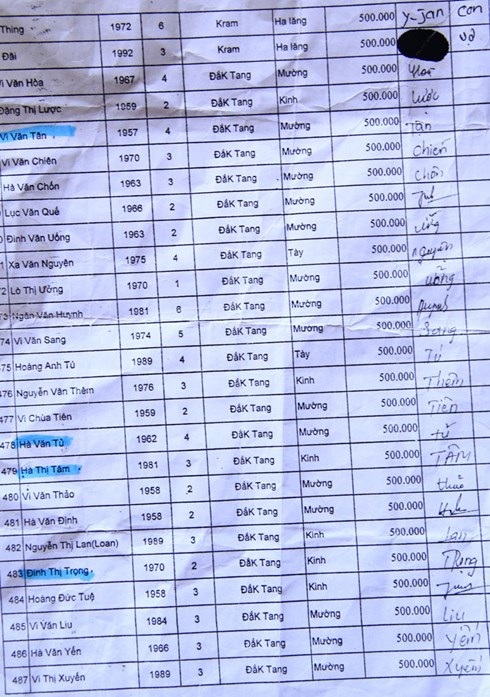 Thing 1972 6 Kram Ha lăng 500.000 Y-Jan con
Đài 1992 3 Kram Ha lăng 500.000 vợ
Vi Văn Hòa 1967 4 ĐăK Tang Mường 500.000 Hoà
Đặng Thị Lược 1959 2 ĐăK Tang Kinh 500.000 Lược
Vi Văn Tân 1957 4 ĐăK Tang Mường 500.000 Tân
Vi Văn Chiên 1970 3 ĐăK Tang Mường 500.000 Chiên
Hà Văn Chồn 1963 3 ĐăK Tang Mường 500.000 chồn
Lục Văn Quế 1966 2 ĐăK Tang Mường 500.000
Đinh Văn Uống 1963 2 ĐăK Tang Mường 500.000 uống
1 Xa Văn Nguyện 1975 4 ĐăK Tang Tày 500.000 nguyện
2 Lò Thị Ưởng 1970 1 ĐăK Tang Mường 500.000
73 Ngân Văn Huynh 1981 6 ĐăK Tang Mường 500.000 Huynh
74 Vi Văn Sang 1974 5 ĐăK Tang Mường 500.000 Sang
475 Hoàng Anh Tú 1989 4 ĐăK Tang Tày 500.000 Tú
476 Nguyễn Văn Thêm 1976 3 ĐăK Tang Kinh 500.000 Thêm
477 Vi Chùa Tiên 1959 2 ĐăK Tang Mường 500.000 Tiên
478 Hà Văn Tủ 1962 4 ĐăK Tang Mường 500.000 tủ
479 Hà Thị Tâm 1981 3 ĐăK Tang Kinh 500.000 TÂM
480 Vi Văn Thảo 1958 2 ĐăK Tang Mường 500.000 thảo
481 Hà Văn Định 1958 2 ĐăK Tang Mường 500.000
482 Nguyễn Thị Lan(Loan) 1989 3 ĐăK Tang Kinh 500.000 lan
483 Đinh Thị Trọng 1970 2 ĐăK Tang Kinh 500.000 Trọng
484 Hoàng Đức Tuệ 1958 3 ĐăK Tang Kinh 500.000
485 Vi Văn Liu 1984 3 ĐăK Tang Mường 500.000 Liu
486 Hà Văn Yến 1966 3 ĐăK Tang Mường 500.000 yến
487 Vi Thị Xuyến 1989 3 ĐăK Tang Mường 500.000 Xuyến